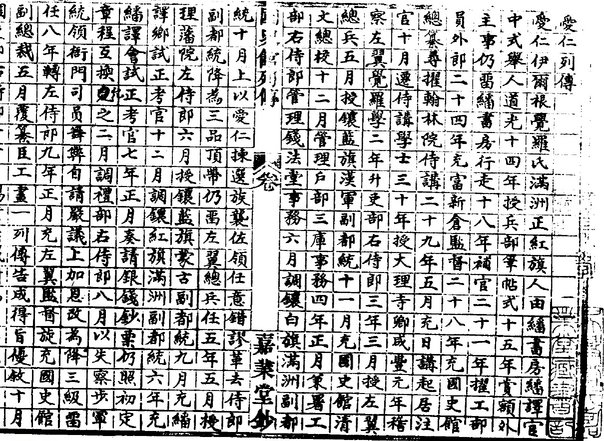 愛仁列傳
愛仁伊爾根覺羅氏滿洲正紅旗人由繙書房繙譯官
中式舉人道光十四年授兵部筆帖式十五年賞額外
主事仍留繙書房行走十八年補官二十一年擢工部
員外郎二十四年充富新倉監督二十八年充國史館
總纂尋擢翰林院侍講二十九年五月充日講起居注
官十月遷侍講學士三十年授大理寺卿咸豐元年稽
察左翼覺羅學二年升吏部右侍郎三年三月授左翼
總兵五月授鑲藍旗漢軍副都統十一月充國史館清
文總校十二月管理戶部三庫事務四年正月兼署工
部右侍郎管理錢法堂事務六月調鑲白旗滿洲副都
國史館列傳 卷 嘉業堂鈔
統十月上以愛仁揀選族襲佐領任意錯謬革去侍郎
副都統降為三品頂帶仍留左翼總兵任五年五月授
理藩院左侍郎六月授鑲藍旗蒙古副都統九月充繙
譯鄉試正考官十二月調鑲紅旗滿洲副都統六年充
繙譯會試正考官七年正月奏請銀錢鈔票仍照初定
章程互換允之二月調禮部右侍郎八月以失察步軍
統領衙門司員舞弊自請嚴議上加恩改為降三級留
任八年轉左侍郎九年正月充左翼監督旋充國史館
副總裁五月覆纂臣工畫一列傳告成得旨優敘十月